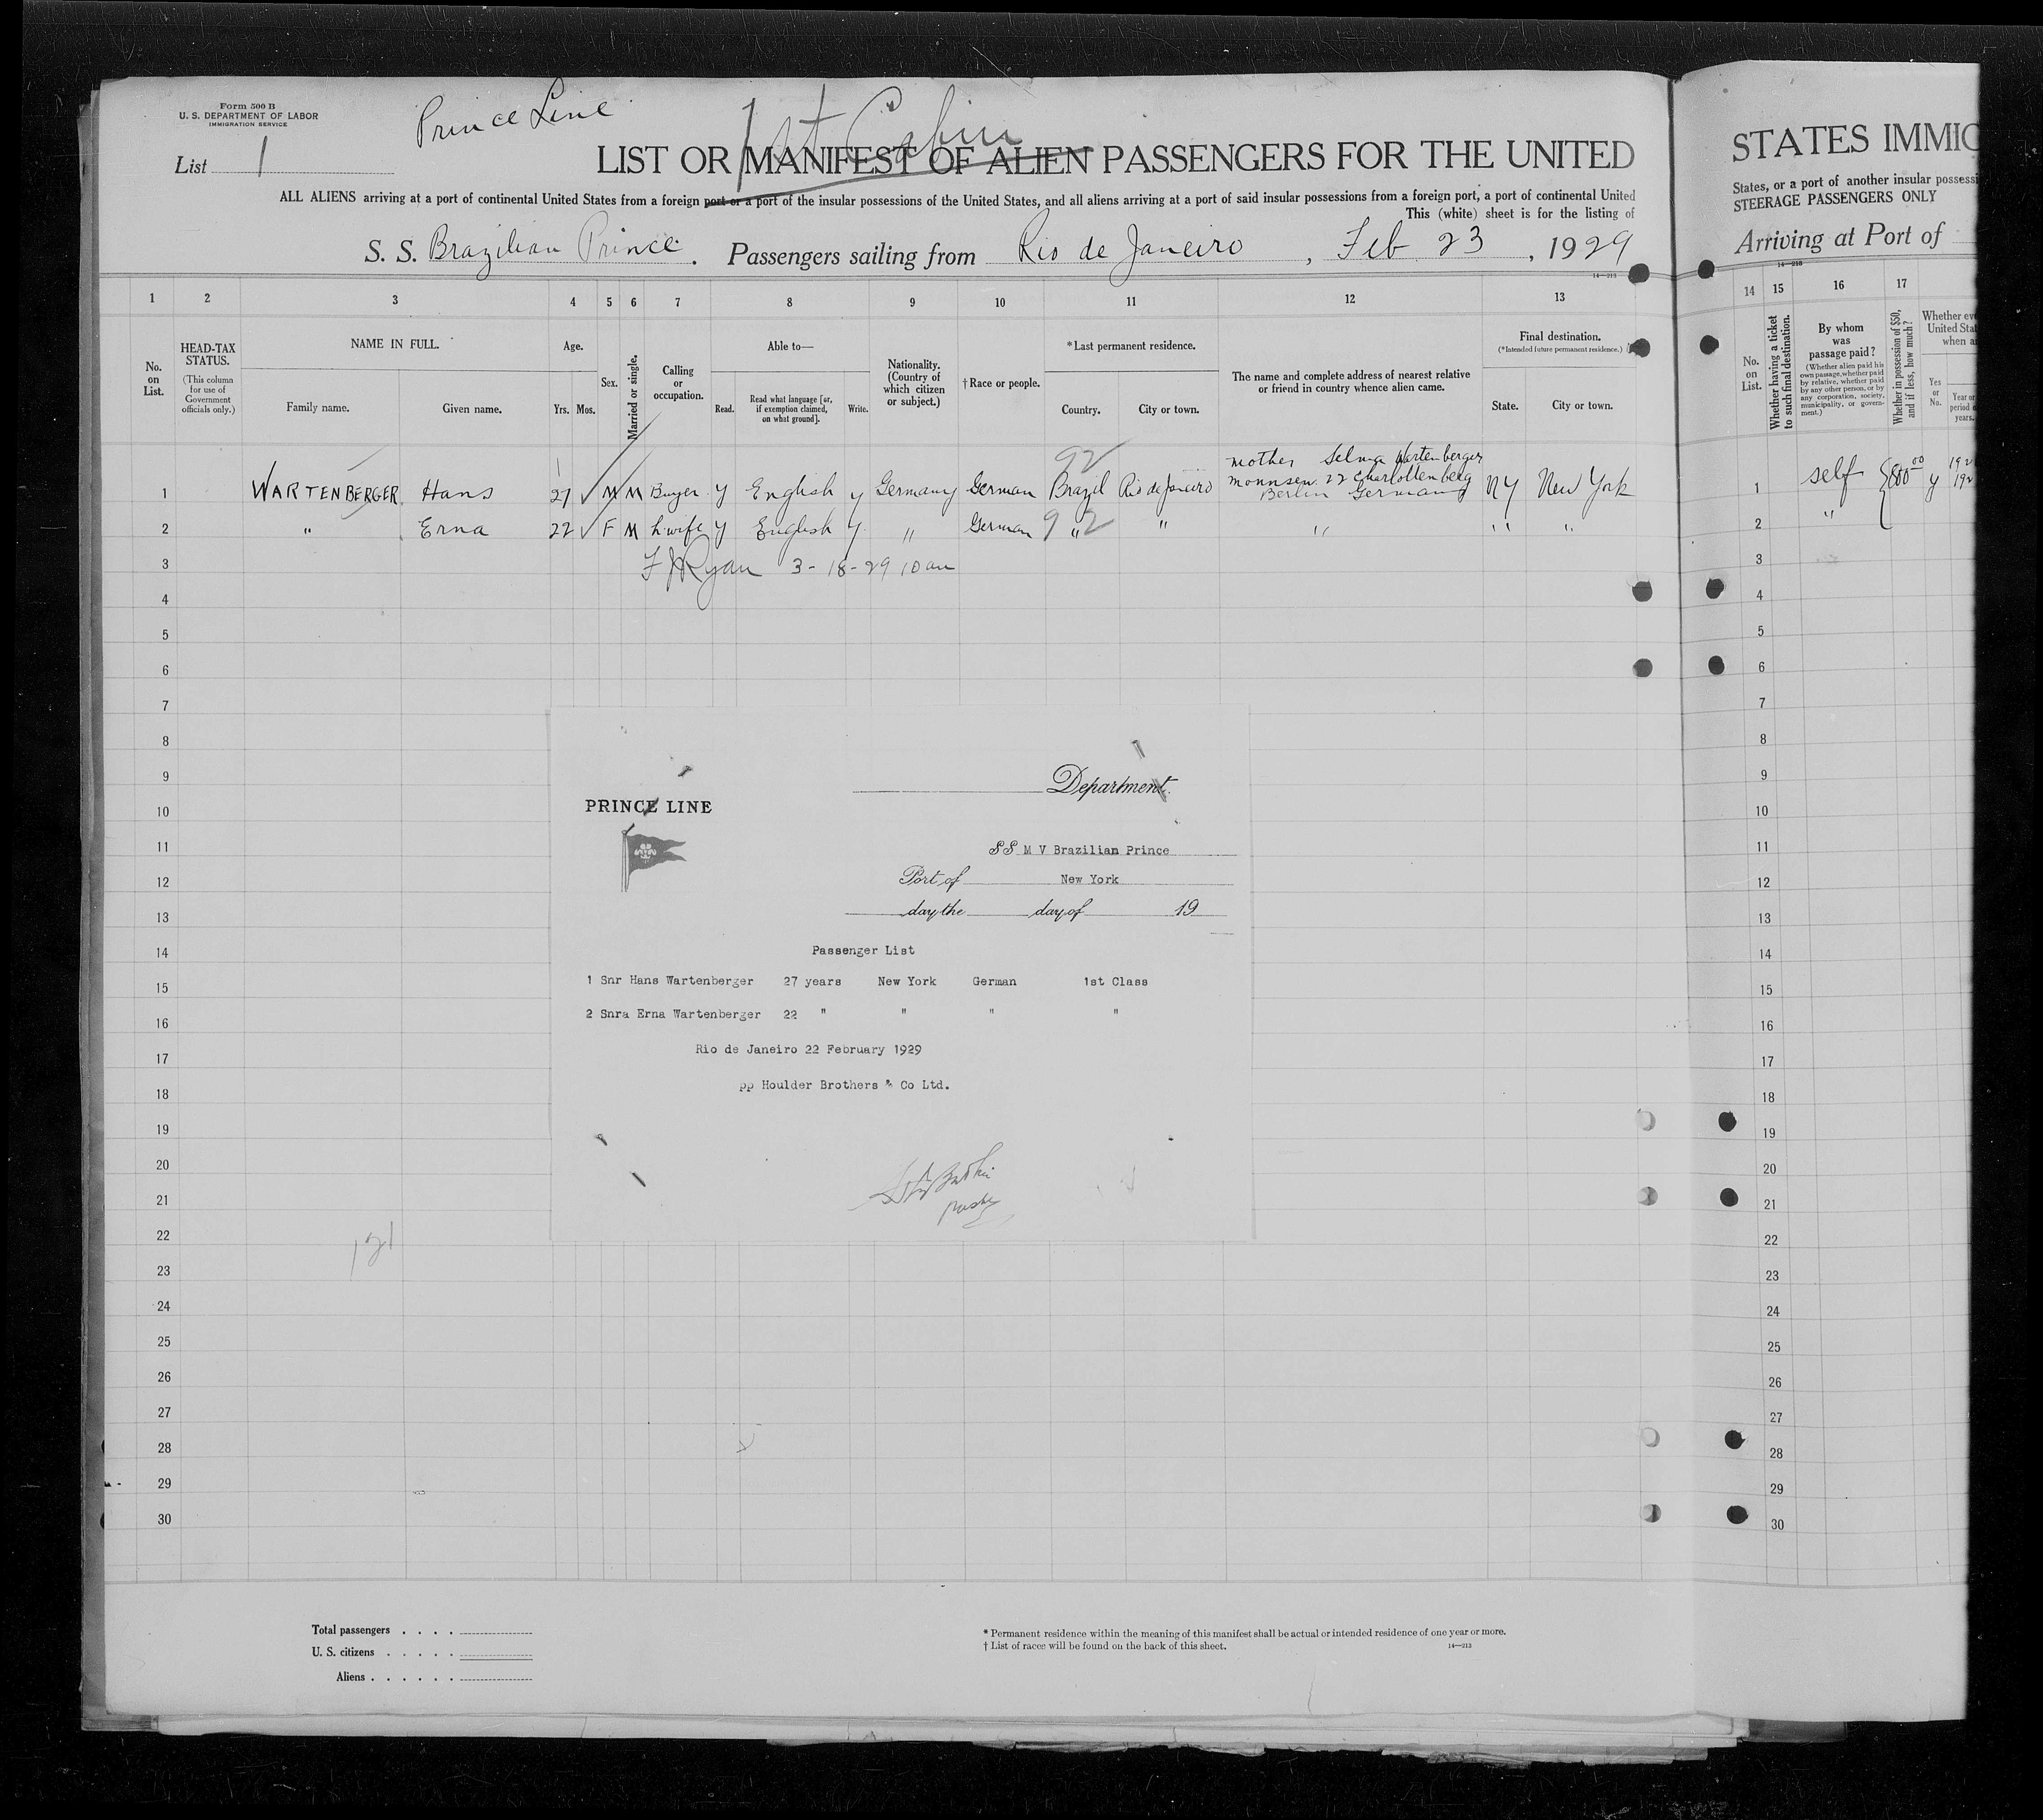 Form 500 B
U. S. DEPARTMENT OF LABOR
IMMIGRATION SERVICE
Prince Line
1st Cabin
List 1
LIST OR MANIFEST OF ALIEN PASSENGERS FOR THE UNITED
ALL ALIENS arriving at a port of continental United States from a foreign port or a port of the insular possessions of the United States, and all aliens arriving at a port of said insular possessions from a foreign port, a port of continental United
This (white) sheet is for the listing of
S. S. Brazilian Prince. Passengers sailing from Rio de Janeiro, Feb 23, 1929
14—213
1 2 3 4 5 6 7 8 9 10 11 12 13
No. on List.
HEAD-TAX STATUS.
(This column for use of Government officials only.)
NAME IN FULL.
Family name. Given name.
Age.
Yrs. Mos.
Sex.
Married or single.
Calling or occupation.
Able to—
Read. Read what language [or, if exemption claimed, on what ground]. Write.
Nationality. (Country of which citizen or subject.)
†Race or people.
*Last permanent residence.
Country. City or town.
The name and complete address of nearest relative or friend in country whence alien came.
Final destination.
(*Intended future permanent residence.)
State. City or town.
92
mother Selma Wartenberger
1 WARTENBERGER Hans 27 M M Buyer y English y Germany German Brazil Rio de Janeiro Mommsen. 22 Charlottenberg NY New York
Berlin Germany
2 " Erna 22 F M h.wife y English y. " German 92 " " " " "
3 F J Ryan 3-18-29 10 am
4
5
6
7
8
9
10
11
12
13
14
15
16
17
18
19
20
21
22
23
24
25
26
27
28
29
30
Department
PRINCE LINE
SS M V Brazilian Prince
Port of New York
day the day of 19
Passenger List
1 Snr Hans Wartenberger 27 years New York German 1st Class
2 Snra Erna Wartenberger 22 " " " "
Rio de Janeiro 22 February 1929
pp Houlder Brothers & Co Ltd.
Total passengers . . . .
U. S. citizens . . . . .
Aliens . . . . . .
* Permanent residence within the meaning of this manifest shall be actual or intended residence of one year or more.
† List of races will be found on the back of this sheet. 14—213
STATES IMMIG
States, or a port of another insular possessi
STEERAGE PASSENGERS ONLY
Arriving at Port of
14—213
14 15 16 17
No. on List.
Whether having a ticket to such final destination.
By whom was passage paid?
(Whether alien paid his own passage, whether paid by relative, whether paid by any other person, or by any corporation, society, municipality, or government.)
Whether in possession of $50, and if less, how much?
Whether ev
United Stat
when a
Yes or No.
Year or
period o
years.
1 self y 192
2 "
3
4
5
6
7
8
9
10
11
12
13
14
15
16
17
18
19
20
21
22
23
24
25
26
27
28
29
30